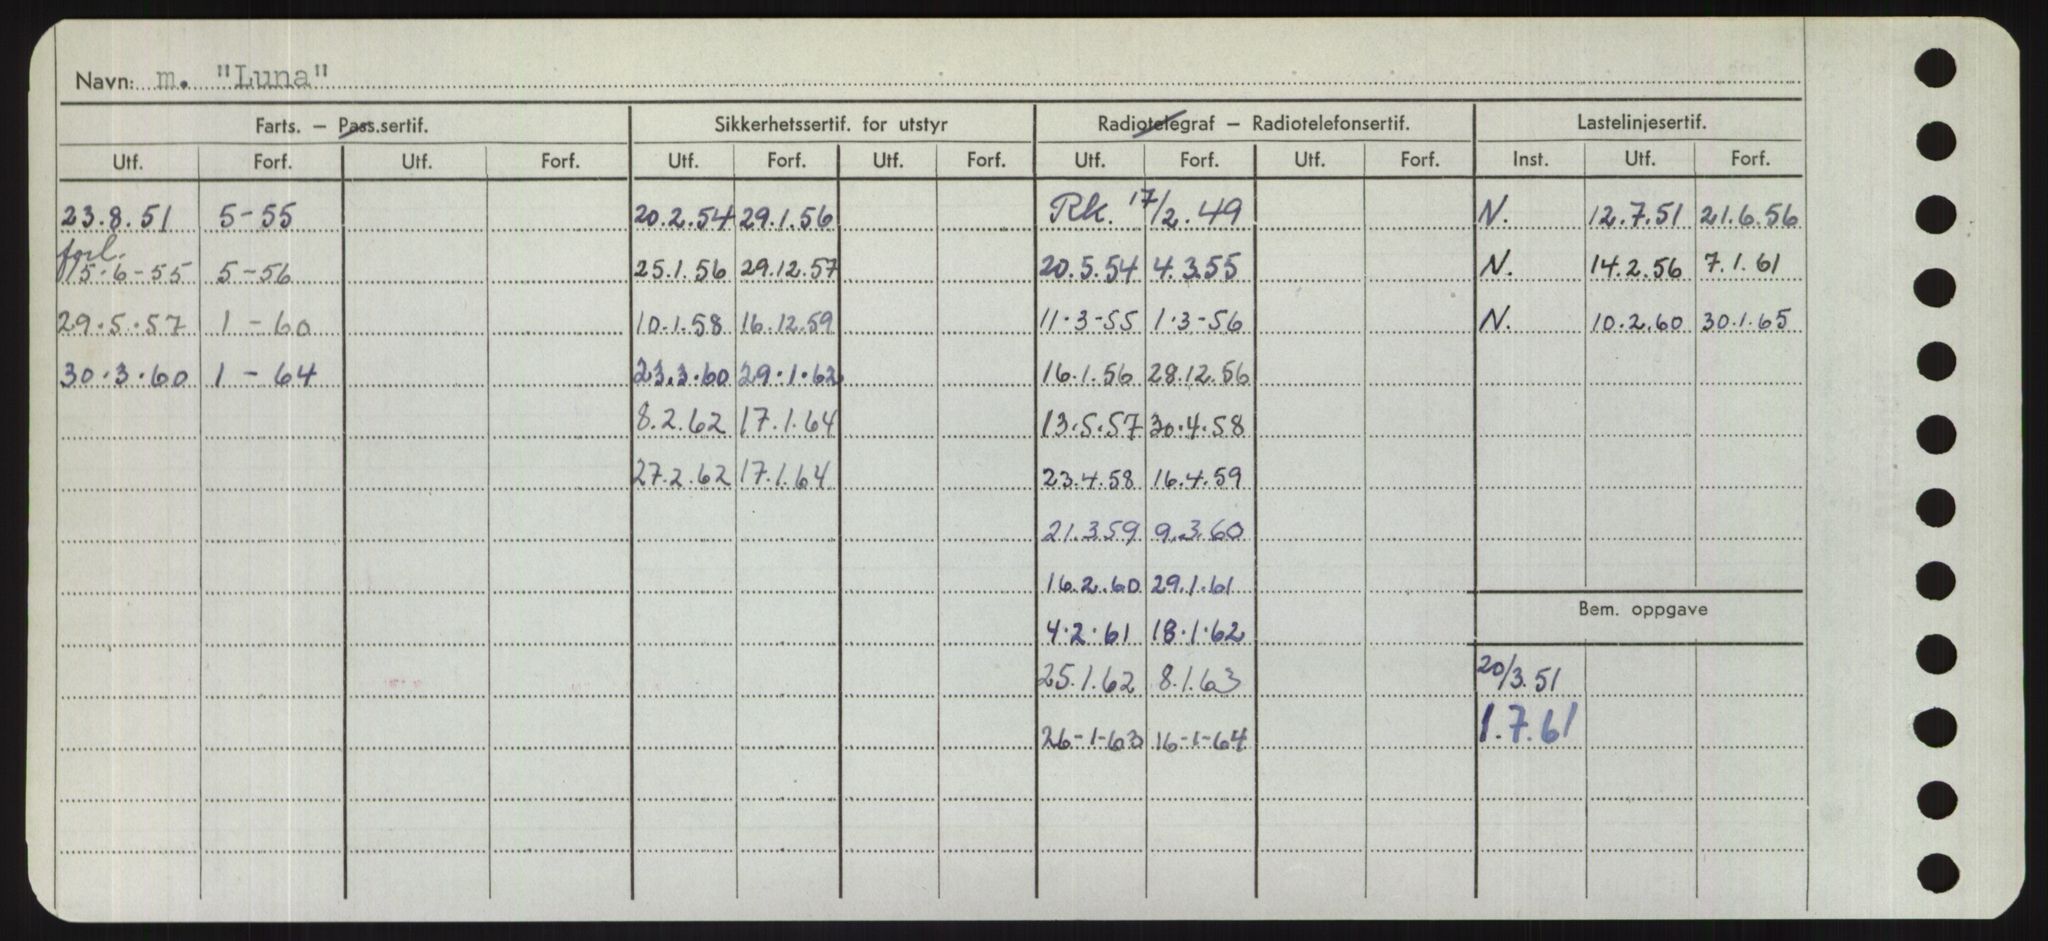 Navn: m. "Luna"
Farts. – Pass.sertif. Sikkerhetssertif. for utstyr Radiotelegraf – Radiotelefonsertif. Lastelinjesertif.
Utf. Forf. Utf. Forf. Utf. Forf. Utf. Forf. Utf. Forf. Utf. Forf. Inst. Utf. Forf.
23.8.51 5-55 20.2.54 29.1.56 Rk. 17/2.49 N. 12.7.51 21.6.56
forl.
15-6-55 5-56 25.1.56 29.12.57 20.5.54 4.3.55 N. 14.2.56 7.1.61
29.5.57 1-60 10.1.58 16.12.59 11.3-55 1.3-56 N. 10.2.60 30.1.65
30.3.60 1-64 23.3.60 29.1.62 16.1.56 28.12.56
8.2.62 17.1.64 13.5.57 30.4.58
27.2.62 17.1.64 23.4.58 16.4.59
21.3.59 9.3.60
16.2.60 29.1.61
Bem. oppgave
4.2.61 18.1.62
25.1.62 8.1.63 20/3.51
26-1-63 16-1-64 1.7.61